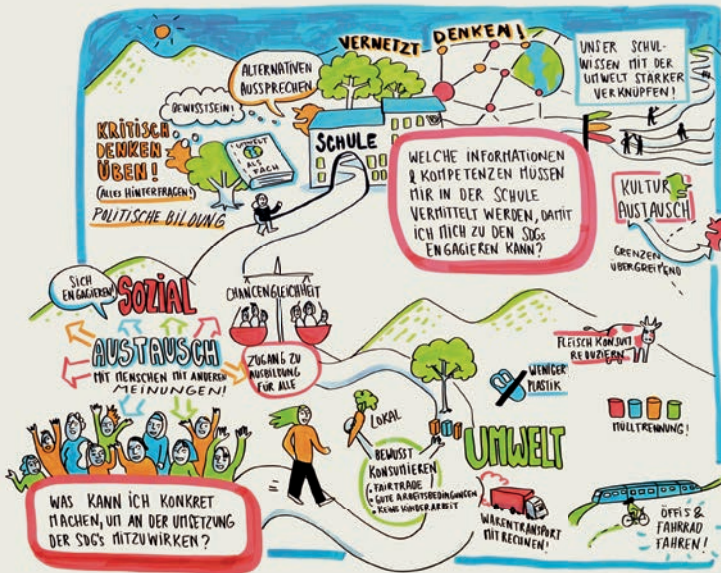 VERNETZT DENKEN!
UNSER SCHUL-
WISSEN MIT DER
UMWELT STÄRKER
VERKNÜPFEN!
ALTERNATIVEN
AUSSPRECHEN
BEWUSSTSEIN!
KRITISCH
DENKEN
ÜBEN!
(ALLES HINTERFRAGEN!)
POLITISCHE BILDUNG
UMWELT
ALS
FACH
SCHULE
WELCHE INFORMATIONEN
& KOMPETENZEN MÜSSEN
MIR IN DER SCHULE
VERMITTELT WERDEN, DAMIT
ICH MICH ZU DEN SDGs
ENGAGIEREN KANN?
KULTUR
AUSTAUSCH
GRENZEN
ÜBERGREIFEND
SICH
ENGAGIEREN!
SOZIAL
AUSTAUSCH
MIT MENSCHEN MIT ANDEREN
MEINUNGEN!
CHANCENGLEICHHEIT
ZUGANG ZU
AUSBILDUNG
FÜR ALLE
FLEISCH KONSUM
REDUZIEREN
WENIGER
PLASTIK
MÜLLTRENNUNG!
LOKAL
BEWUSST
KONSUMIEREN
• FAIRTRADE
• GUTE ARBEITSBEDINGUNGEN
• KEINE KINDERARBEIT
UMWELT
WARENTRANSPORT
MIT RECHNEN!
ÖFFIS &
FAHRRAD
FAHREN!
WAS KANN ICH KONKRET
MACHEN, UM AN DER UMSETZUNG
DER SDG's MITZUWIRKEN?